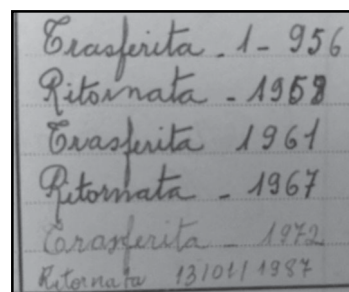 Trasferita - 1 - 956
Ritornata - 1958
Trasferita 1961
Ritornata - 1967
Trasferita - 1972
Ritornata 13/01/1987